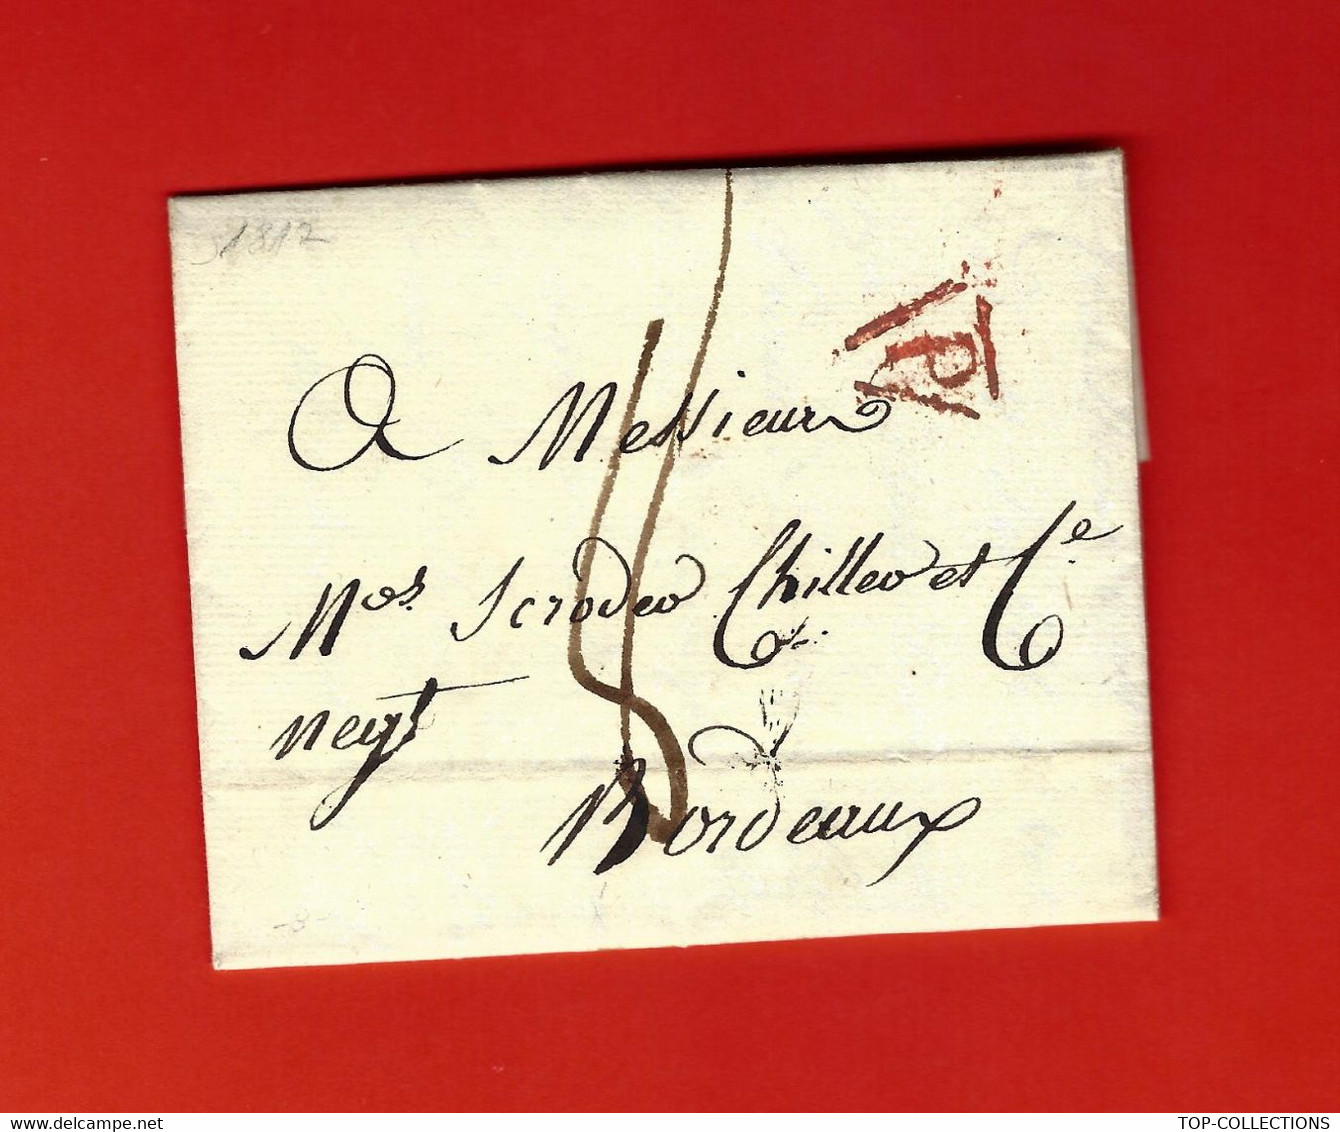 1812
P
A Messieurs
Nos. Scrodeo Chilleo et Cie
negt
Bordeaux
-8-
delcampe.net
TOP-COLLECTIONS